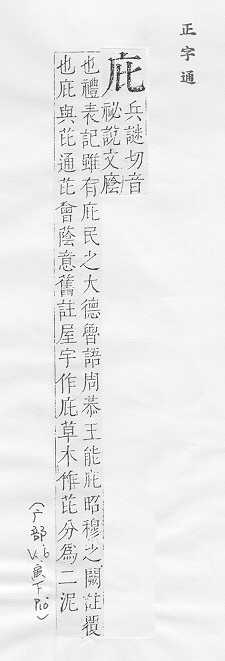 正字通
庇
兵謎切音
祕說文廕
也禮表記雖有庇民之大德魯語周恭王能庇昭穆之闕註覆
也庇與芘通芘會蔭意舊註屋宇作庇草木作芘分爲二泥